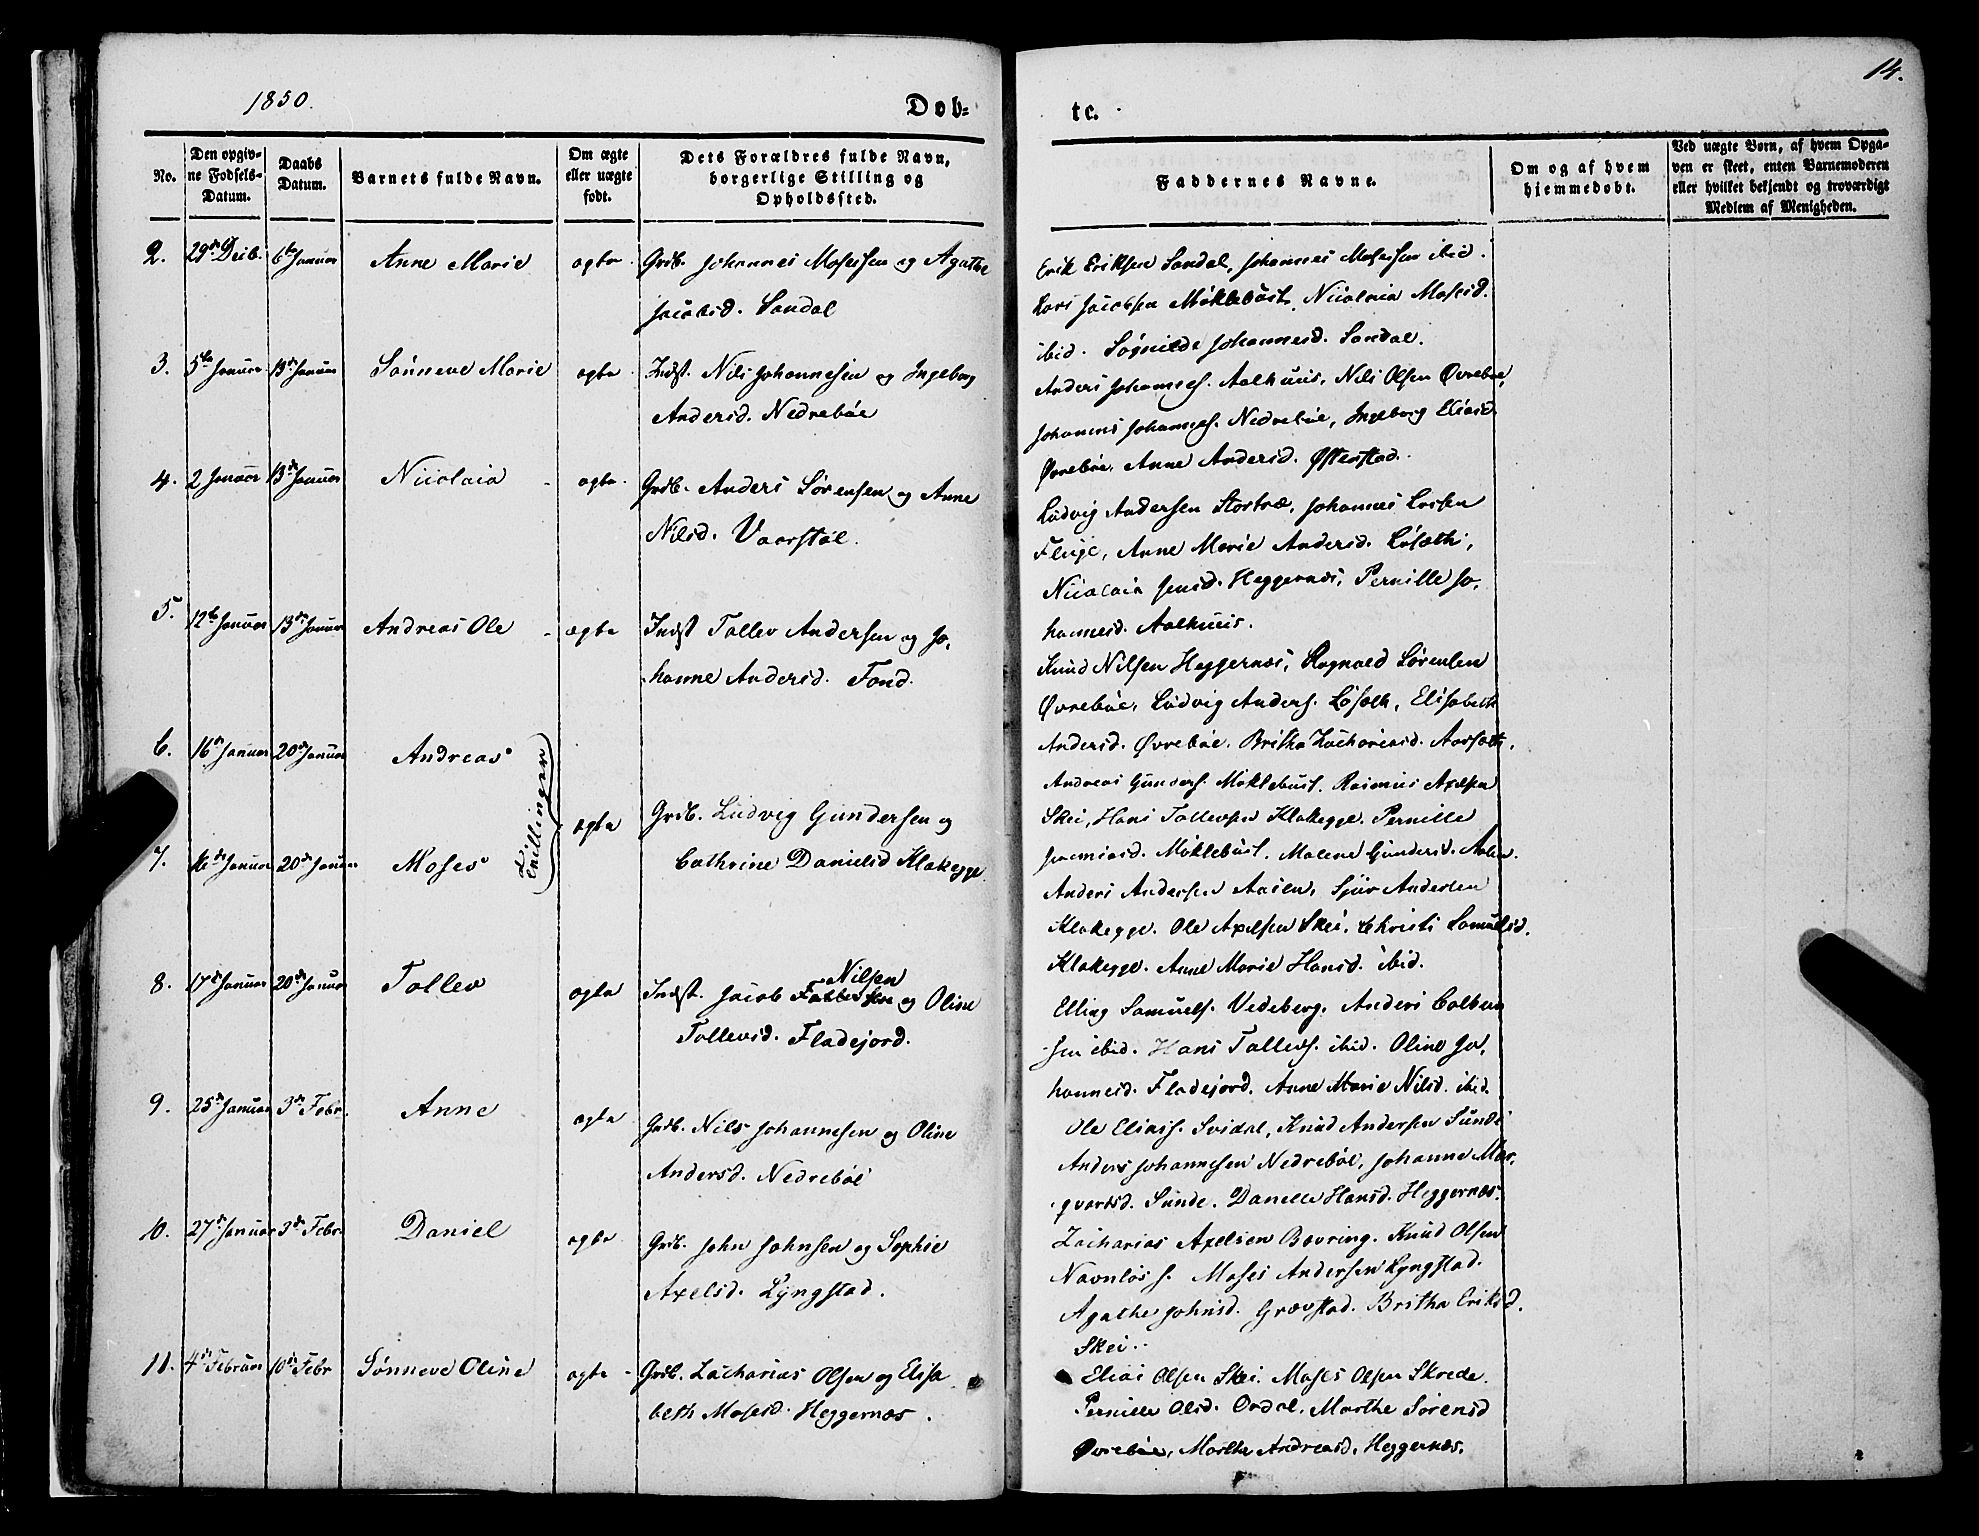 1850.
Døb=
te.
14.
No.
Den opgiv-
ne Fødsels-
Datum.
Daabs
Datum.
Barnets fulde Navn.
Om ægte
eller uægte
født.
Dets Forældres fulde Navn,
borgerlige Stilling og
Opholdssted.
Faddernes Navne.
Om og af hvem
hjemmedøbt.
Ved uægte Børn, af hvem Opga-
ven er skeet, enten Barnemoderen
eller hvilket bekjendt og troværdigt
Medlem af Menigheden.
2. 29de Decb. 6te Januar Anne Marie ægte Grdb. Johannes Mosessen og Agathe
Jacobsd. Sandal
3. 5te Januar 13de Januar Sønneve Marie ægte Indst. Nils Johannesen og Ingeborg
Andersd. Nedrebøe
4. 2 Januar 13de Januar Nicolaia ægte Grdb. Anders Sørensen og Anne
Nilsd. Vaarstøl.
5. 12te Januar 13de Januar Andreas Ole ægte Indst Tollev Andersen og Jo,
hanne Andersd. Fond.
6. 16de Januar 20de Januar Andreas
Tvillinger
ægte Grdb. Ludvig Gundersen og
7. 16de Januar 20de Januar Moses
Cathrine Danielsd Klakegge.
8. 17de Januar 20de Januar Tollev ægte Indst. Jacob Nilsen og Oline
Tollevsd. Fladejord.
9. 25de Januar 3de Febr. Anne ægte Grdb. Nils Johannesen og Oline
Andersd. Nedrebøe
10. 27de Januar 3de Febr. Daniel ægte Grdb. John Johnsen og Sophie
Axelsd. Lyngstad.
11. 4de Februar 10de Febr Sønneve Oline ægte Grdb. Zacharias Olsen og Elisa
beth Mosesd. Heggernæs.
Erik Eriksen Sandal, Johannes Mosessen ibid.
Lars Jacobsen Møklebust, Nicolaia Mosesd.
ibid. Søgnilde Johannesd. Sandal.
Anders Johannes. Aalhuus, Nils Olsen Øvrebøe,
Johannes Johannes. Nedrebøe, Ingeborg Eliasd.
Øvrebøe, Anne Andersd. Østerstad.
Ludvig Andersen Stortræ, Johannes Larsen
Fluge, Anne Marie Andersd. Løsæth,
Nicolaia Jensd. Heggernæs, Pernille Jo,
hannesd. Aalhuus.
Knud Nilsen Heggernæs, Ragnald Sørensen
Øvrebøe, Ludvig Anders. Løsæth, Elisabeth
Andersd. Øvrebøe. Britha Zachariasd. Aarsæth.
Andreas Gunders. Møklebust. Rasmus Axelsen
Skei, Hans Tollevsen Klakegge. Pernille
Jeremiasd. Møklebust. Malene Gundersd. Aalen.
Anders Andersen Aasen, Sjur Andersen
Klakegge. Ole Axelsen Skei, Christi Samuelsd.
Klakegge. Anne Marie Hansd. ibid.
Elling Samuels. Vedeberg. Anders Colbein
sen ibid. Hans Tollevs. ibid. Oline Jo,
hannesd. Fladejord. Anne Marie Nilsd. ibid.
Ole Eliass. Svidal, Knud Andersen Sunde
Anders Johannesen Nedrebøe, Johanne Mar,
qvartsd. Sunde. Danelle Hansd. Heggernæs.
Zacharias Axelsen Bovring. Knud Olsen
Navnløs. Moses Andersen Lyngstad.
Agathe Johnsd. Grævstad. Britha Eriksd.
Skei.
Elias Olsen Skei. Moses Olsen Skrede.
Pernille Olsd. Ordal. Marthe Sørensd
Øvrebøe, Marthe Andreasd. Heggernæs.